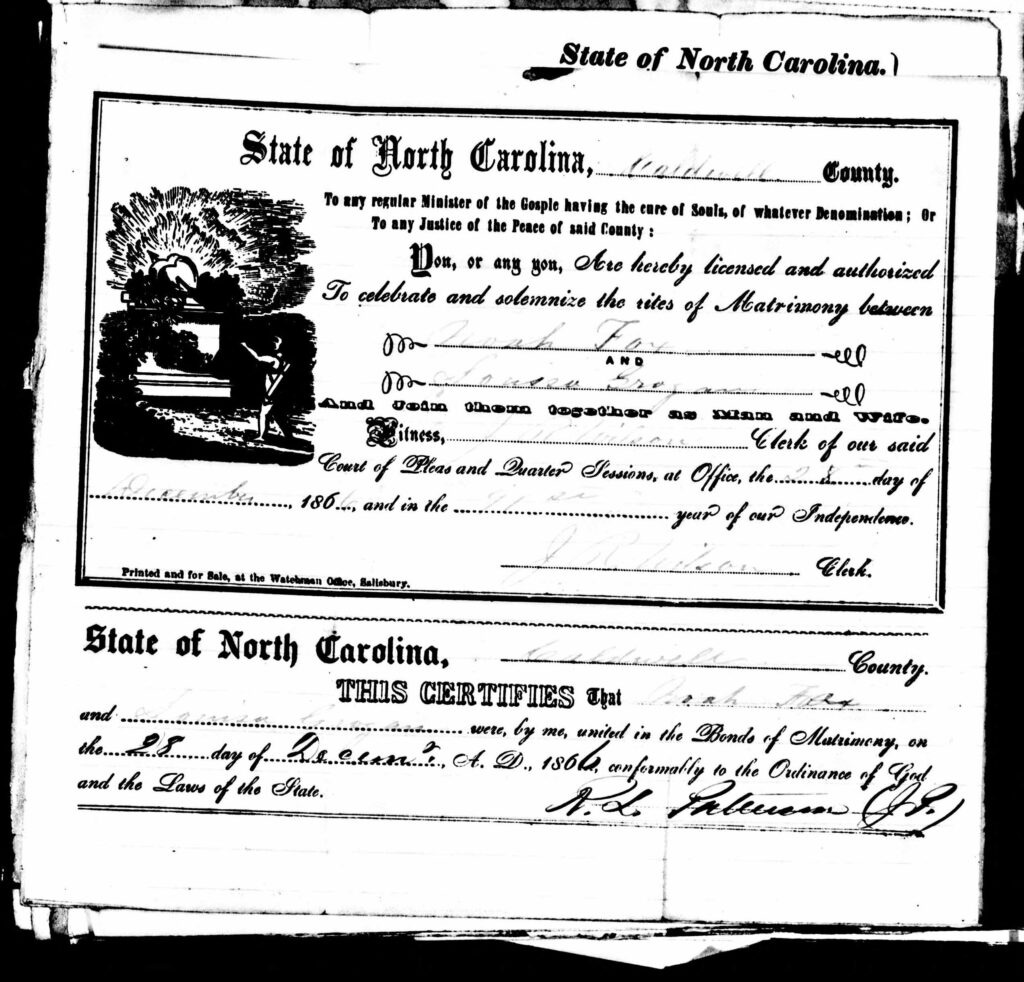 State of North Carolina.)
State of North Carolina, Caldwell County.
To any regular Minister of the Gosple having the cure of Souls, of whatever Denomination; Or
To any Justice of the Peace of said County:
You, or any you, Are hereby licensed and authorized
To celebrate and solemnize the rites of Matrimony between
Noah Fox
AND
Louisa Grogan
And Join them together as Man and Wife.
Witness, J R Wilson Clerk of our said
Court of Pleas and Quarter Sessions, at Office, the 28 day of
December, 1866, and in the 91st year of our Independence.
J R Wilson Clerk.
Printed and for Sale, at the Watchman Office, Salisbury.
State of North Carolina, Caldwell County.
THIS CERTIFIES That Noah Fox
and Louisa Grogan were, by me, united in the Bonds of Matrimony, on
the 28 day of Decemr, A. D., 1866, conformably to the Ordinance of God
and the Laws of the State.
L. Patterson (J.P.)